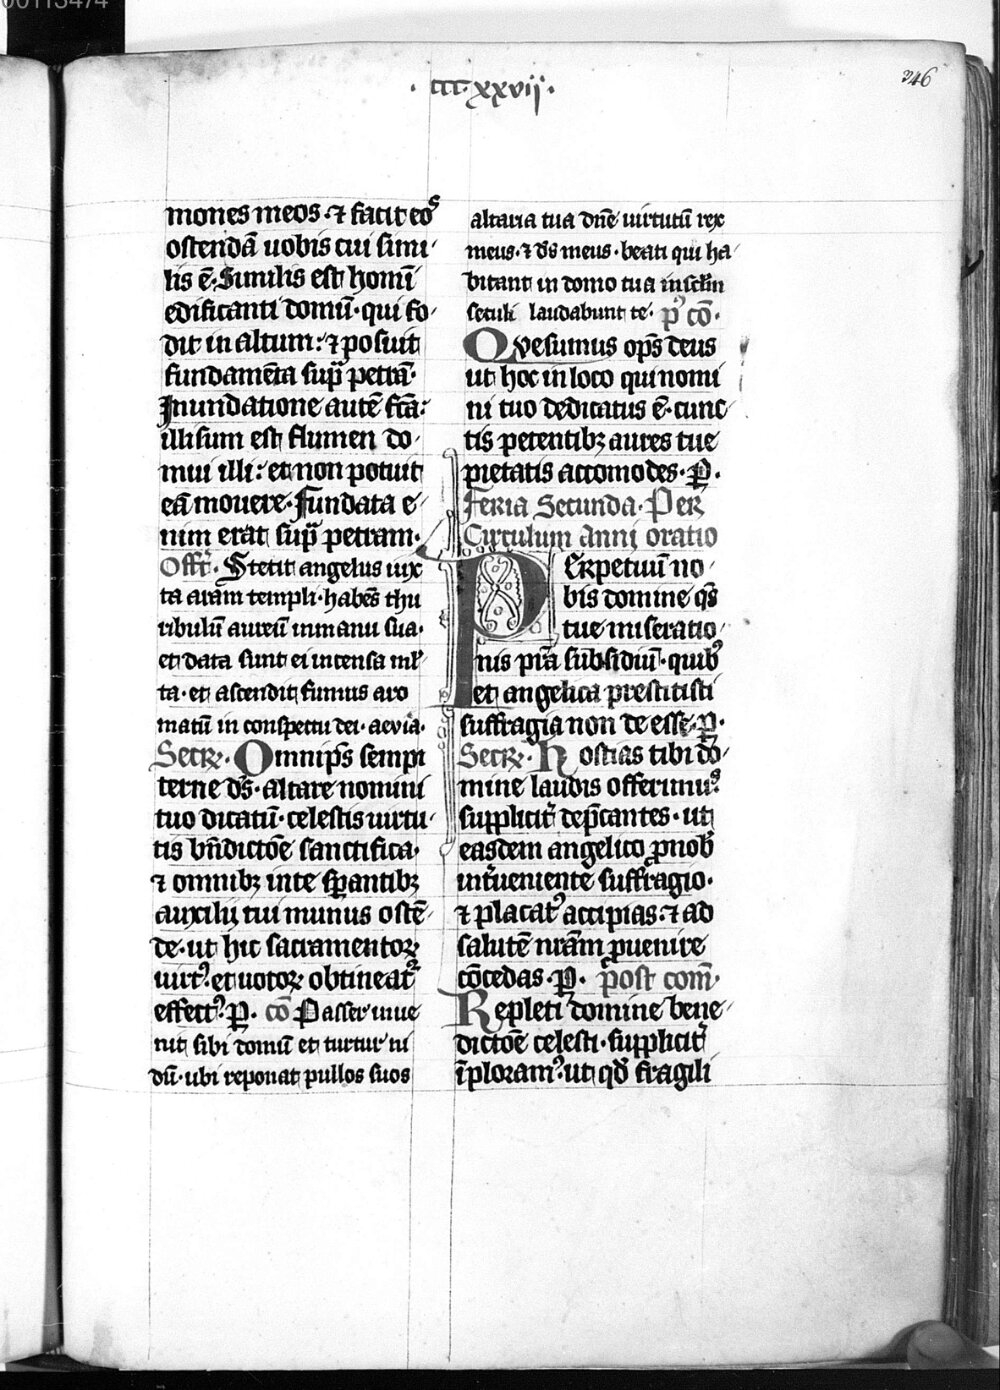 00113474
· ccc·xxvij ·
246
mones meos·⁊ facit eoˢ
ostendā uobis cui simi·
lis ē·Similis est homī
edificanti domū·qui fo·
dit in altum:⁊ posuit
fundamēta supͣ petrā·
Inundatione autē fc̄a:
illisum est flumen do·
mui illi: et non potuit
eā mouere·fundata e·
nim erat supͣ petram·
Offr̄· Stetit angelus iux
ta aram templi·habēs thu
ribulū aureū in manu sua·
et data sunt ei incensa ml̄
ta·et ascendit fumus aro
matū in conspectu dei·aevia·
Secr̄· Omnip̄s sempi
terne d̄s·altare nomini
tuo dicatū·celestis uirtu·
tis bn̄dictōe sanctifica·
⁊ omnibꝫ in te sꝑantibꝫ
auxilij tui munus ostē·
de·ut hic sacramentoꝝ
uirtꝰ·et uotoꝝ obtineatᷣ
effectꝰ·P̱· cō Passer inue
nit sibi domū et turtur ni
dū·ubi reponat pullos suos
altaria tua dn̄e uirtutū rex
meus·⁊ d̄s meus·beati qui ha·
bitant in domo tua in sc̄lm
seculi laudabunt te· pꝰ cō·
Qvesumus op̄s deus
ut hoc in loco qui nomi
ni tuo dedicatus ē·cunc
tis petentibꝫ aures tue
pietatis accomodes·P̱·
Feria Secunda·Per
Circulum Anni oratio
PErpetuū no·
bis domine q̄s
tue miseratio·
nis pͣa subsidiū·quibꝰ
et angelica prestitisti
suffragia non de esse·P̱·
Secr̄· Hostias tibi do·
mine laudis offerimuꝰ
supplicit̉ dep̄cantes·ut
easdem angelico ꝓ nob̉
int̉ueniente suffragio·
⁊ placatꝰ accipias·⁊ ad
salutē nr̄am ꝓuenire
cōcedas·P̱· post com̄·
Repleti domine bene·
dictōe celesti·supplicit̉
īploramꝰ·ut qd̄ fragili